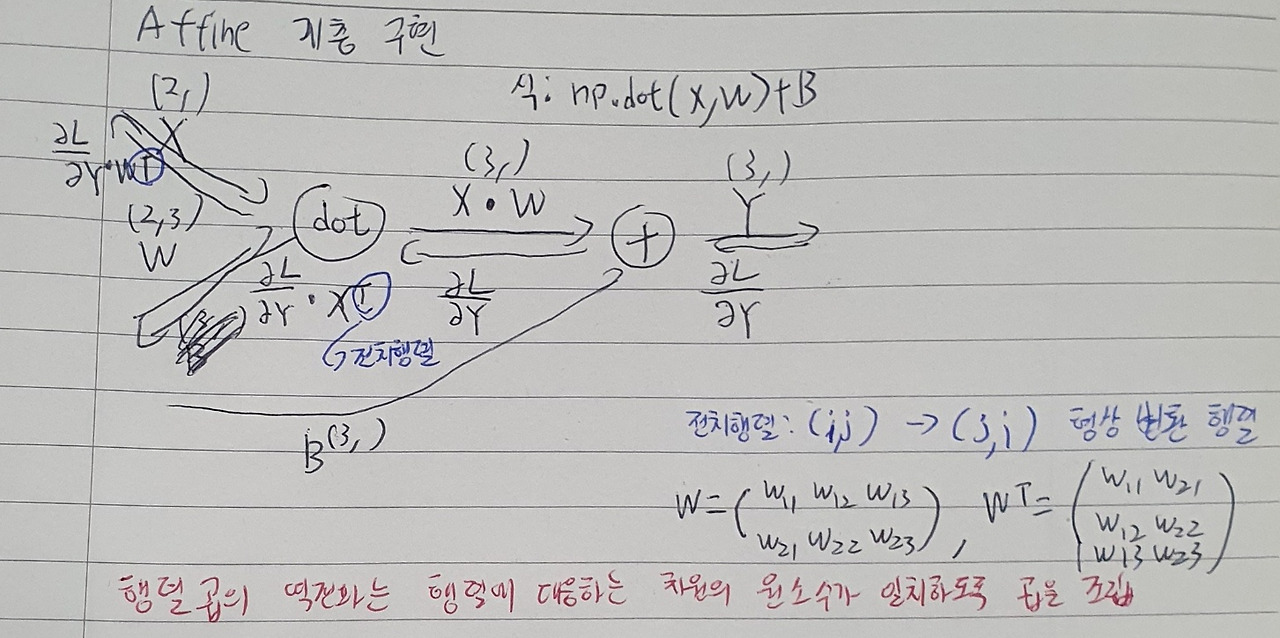 Affine 계층 구현
식: np.dot(X,W)+B
(2,)
X
∂L/∂Y・WT
(2,3)
W
dot
(3,)
X・W
+
(3,)
Y
∂L/∂Y・XT
∂L/∂Y
∂L/∂Y
전치행렬
B(3,)
전치행렬: (i,j) → (j,i) 형상 변환 행렬
W=(w11 w12 w13
w21 w22 w23), WT=(w11 w21
w12 w22
w13 w23)
행렬 곱의 역전파는 행렬에 대응하는 차원의 원소수가 일치하도록 곱을 조립